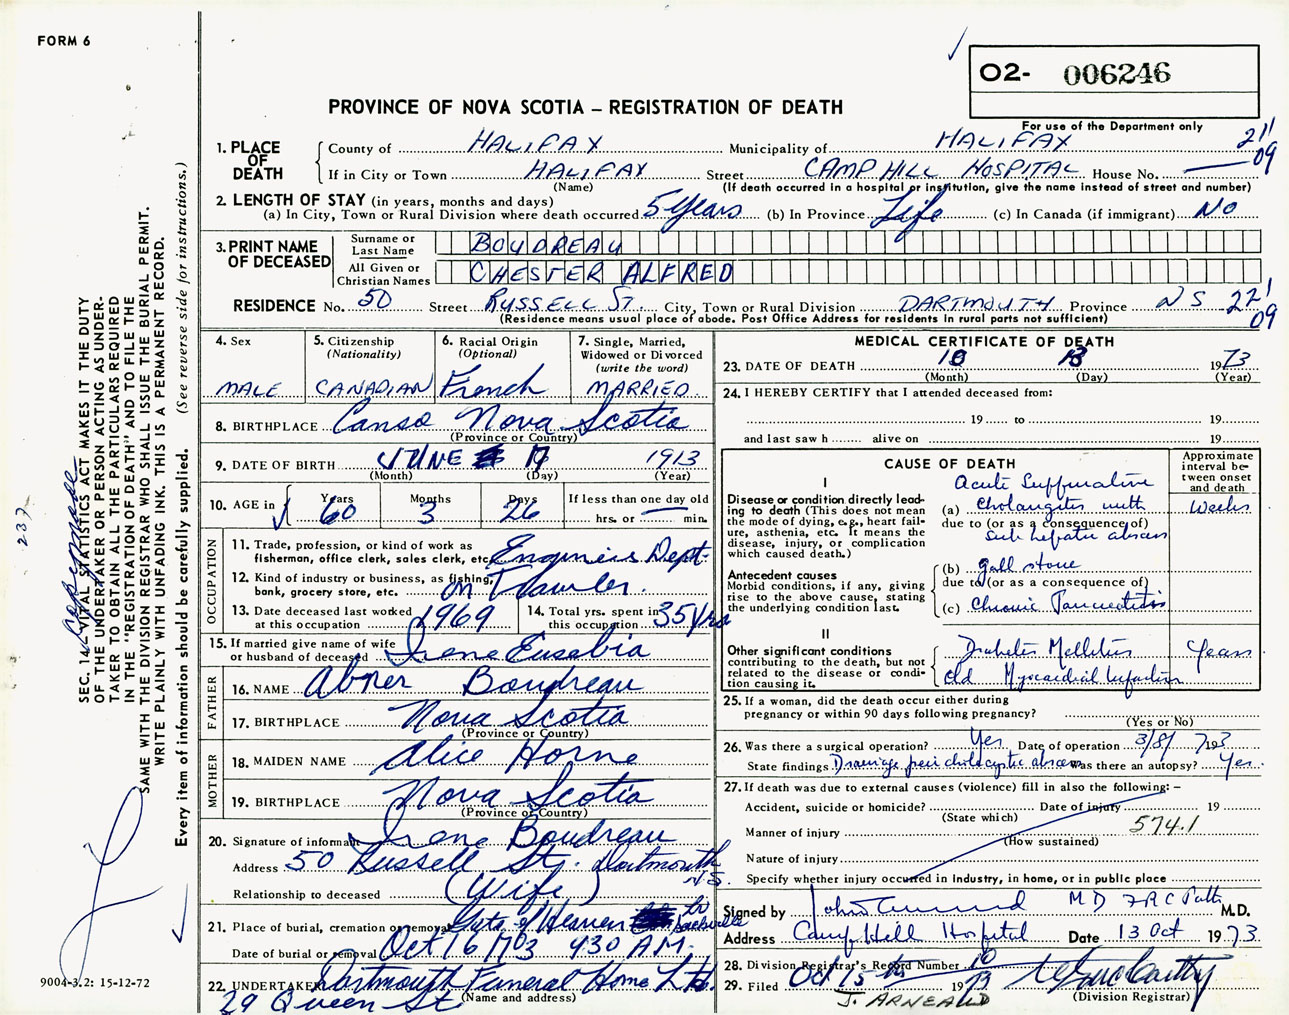 FORM 6
O2- 006246
PROVINCE OF NOVA SCOTIA – REGISTRATION OF DEATH
For use of the Department only
1. PLACE OF DEATH
County of HALIFAX Municipality of HALIFAX 21' 09
If in City or Town HALIFAX Street CAMP HILL HOSPITAL House No. —
(Name) (If death occurred in a hospital or institution, give the name instead of street and number)
2. LENGTH OF STAY (in years, months and days)
(a) In City, Town or Rural Division where death occurred 5 years (b) In Province Life (c) In Canada (if immigrant) NO
3. PRINT NAME OF DECEASED
Surname or Last Name BOUDREAU
All Given or Christian Names CHESTER ALFRED
RESIDENCE No. 50 Street RUSSELL ST. City, Town or Rural Division DARTMOUTH Province N S 22' 09
(Residence means usual place of abode. Post Office Address for residents in rural parts not sufficient)
4. Sex MALE
5. Citizenship (Nationality) CANADIAN
6. Racial Origin (Optional) French
7. Single, Married, Widowed or Divorced (write the word) MARRIED
8. BIRTHPLACE Canso Nova Scotia
(Province or Country)
9. DATE OF BIRTH JUNE 17 1913
(Month) (Day) (Year)
10. AGE in Years 60 Months 3 Days 26 If less than one day old — hrs. or min.
OCCUPATION
11. Trade, profession, or kind of work as fisherman, office clerk, sales clerk, etc. Engineers Dept.
12. Kind of industry or business, as fishing, bank, grocery store, etc. on Trawler.
13. Date deceased last worked at this occupation 1969
14. Total yrs. spent in this occupation 35 Yrs
15. If married give name of wife or husband of deceased Irene Eusebia
FATHER
16. NAME Abner Boudreau
17. BIRTHPLACE Nova Scotia
(Province or Country)
MOTHER
18. MAIDEN NAME Alice Horne
19. BIRTHPLACE Nova Scotia
(Province or Country)
20. Signature of informant Irene Boudreau
Address 50 Russell St. Dartmouth N.S.
Relationship to deceased (Wife)
21. Place of burial, cremation or removal Gate of Heaven Lr Sackville
Date of burial or removal Oct 16 1973 930 A.M.
22. UNDERTAKER Dartmouth Funeral Home Ltd
29 Queen St (Name and address)
MEDICAL CERTIFICATE OF DEATH
23. DATE OF DEATH 10 13 1973
(Month) (Day) (Year)
24. I HEREBY CERTIFY that I attended deceased from:
19 to 19
and last saw h alive on 19
CAUSE OF DEATH
Approximate interval between onset and death
I
Disease or condition directly leading to death (This does not mean the mode of dying, e.g., heart failure, asthenia, etc. It means the disease, injury, or complication which caused death.)
(a) Acute Suppurative Cholangitis with Weeks
due to (or as a consequence of)
Sub hepatic abscess
Antecedent causes
Morbid conditions, if any, giving rise to the above cause, stating the underlying condition last.
(b) gall stone
due to (or as a consequence of)
(c) Chronic Pancreatitis
II
Other significant conditions contributing to the death, but not related to the disease or condition causing it.
Diabetes Mellitus Years
old Myocardial Infarction
25. If a woman, did the death occur either during pregnancy or within 90 days following pregnancy?
(Yes or No)
26. Was there a surgical operation? Yes Date of operation 3/8/ 1973
State findings Drainage pericholecystic abscess Was there an autopsy? Yes.
27. If death was due to external causes (violence) fill in also the following: –
Accident, suicide or homicide? Date of injury 19
(State which)
Manner of injury 574.1
(How sustained)
Nature of injury
Specify whether injury occurred in Industry, in home, or in public place
Signed by John M D F R C Path M.D.
Address Camp Hill Hospital Date 13 Oct 1973
28. Division Registrar's Record Number 10
29. Filed Oct 15 1973
J. ARNEAUD (Division Registrar)
SEC. 14—VITAL STATISTICS ACT MAKES IT THE DUTY
OF THE UNDERTAKER OR PERSON ACTING AS UNDER-
TAKER TO OBTAIN ALL THE PARTICULARS REQUIRED
IN THE "REGISTRATION OF DEATH" AND TO FILE THE
SAME WITH THE DIVISION REGISTRAR WHO SHALL ISSUE THE BURIAL PERMIT.
WRITE PLAINLY WITH UNFADING INK. THIS IS A PERMANENT RECORD.
Every item of information should be carefully supplied. (See reverse side for instructions.)
237
9004-3.2: 15-12-72